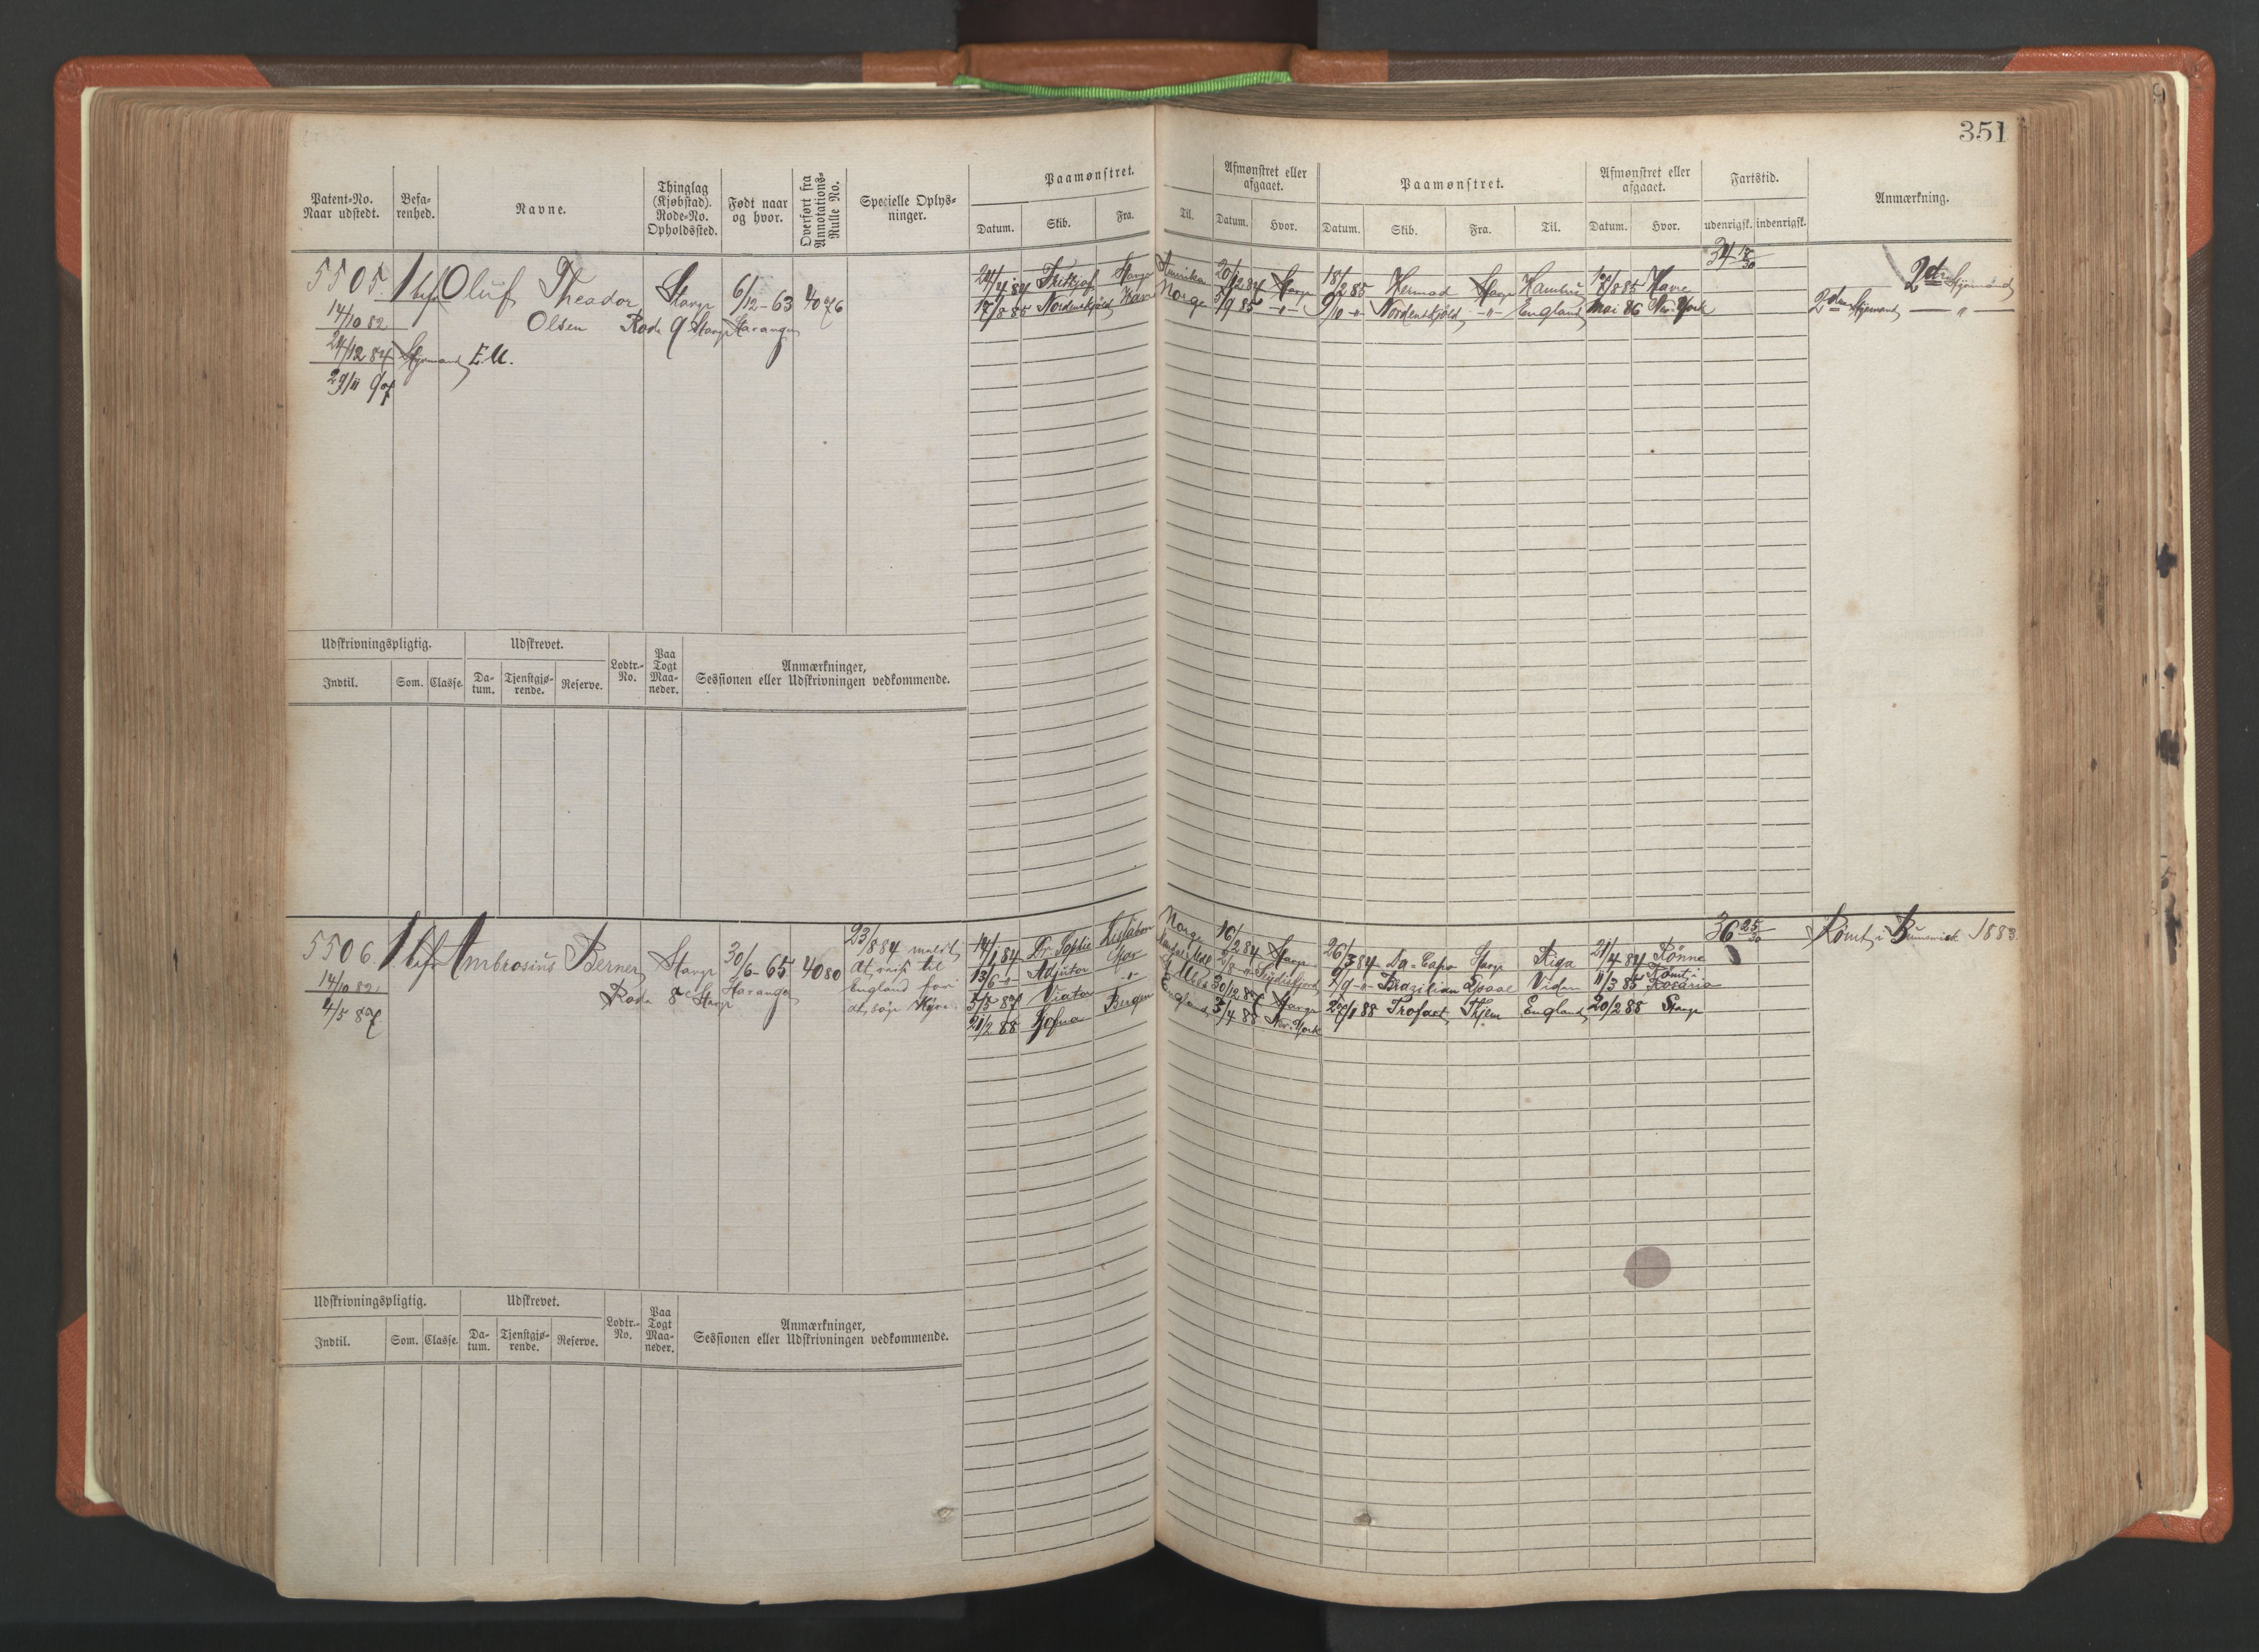 351
Patent-No. Naar udstedt.
Befa-renhed.
Navne.
Thinglag (Kjøbstad). Rode-No. Opholdssted.
Født naar og hvor.
Overført fra Annotations-Rulle No.
Specielle Oplys-ninger.
Paamønstret.
Datum. Skib. Fra. Til.
Afmønstret eller afgaaet.
Datum. Hvor.
Paamønstret.
Datum. Skib. Fra. Til.
Afmønstret eller afgaaet.
Datum. Hvor.
Fartstid.
udenrigsk. indenrigsk.
Anmærkning.
5505 1 bef Oluf Theodor Stavgr 6/12-63 4076
Olsen Rode 9 Stavgr
14/10 82
24/12 84 Styrmand E.M.
29/11 97
24/4 84 Fritkjof Stavgr Amerika 20/12 84 Stavgr 18/2 85 Hermod Stavgr Hamburg 12/8 85 Havre 34 18/30
17/8 85 Nordenskjøld Havre Norge 5/9 85 -"- 9/10 -"- Nordenskjøld -"- England Mai 86 New-York
2den Styrmand
2den Styrmand — " —
Udskrivningspligtig. Udskrevet. Lodtr.-No. Paa Togt Maa-neder. Anmærkninger, Sessionen eller Udskrivningen vedkommende.
Indtil. Som. Classe. Da-tum. Tjenstgjø-rende. Reserve.
5506. 1 bef Ambrosius Berner Stavgr 30/6-65 4080
Rode 8 Stavgr
14/10 82
4/5 87
23/8 84 meldt
at reise til
England for
at søge Hyre.
14/1 84 Dr Sophie Lissabon Norge 16/2 84 Stavgr 26/3 84 Da-Capo Stavgr Riga 21/4 84 Rønne 36 25/30
13/6 -"- Adjutor Stavgr Brazilian Rømt i 11/3 85 Rosario
5/5 87 Viator -"- 30/12 87 Stavgr 25/1 88 Trofast England 20/2 88 Stavgr
21/2 88 Hofnar Bergen England 3/4 88 New-York
Rømt i Brunswick 1883.
Udskrivningspligtig. Udskrevet. Lodtr.-No. Paa Togt Maa-neder. Anmærkninger, Sessionen eller Udskrivningen vedkommende.
Indtil. Som. Classe. Da-tum. Tjenstgjø-rende. Reserve.